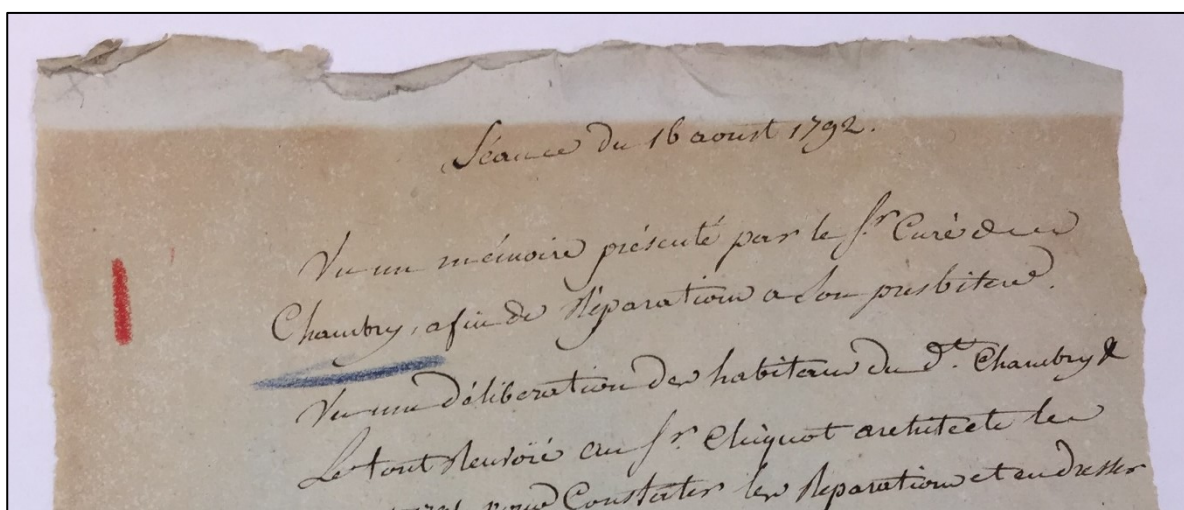 Séance du 16 aoust 1792.
Vu un mémoire présenté par le Sr. Curé de
Chambry, afin de Réparation a Son presbitere.
Vu une déliberation des habitans du dt. Chambry &
Le tout Renvoié au Sr. Cliquot architecte le
pour Constater les Réparations et en dresser